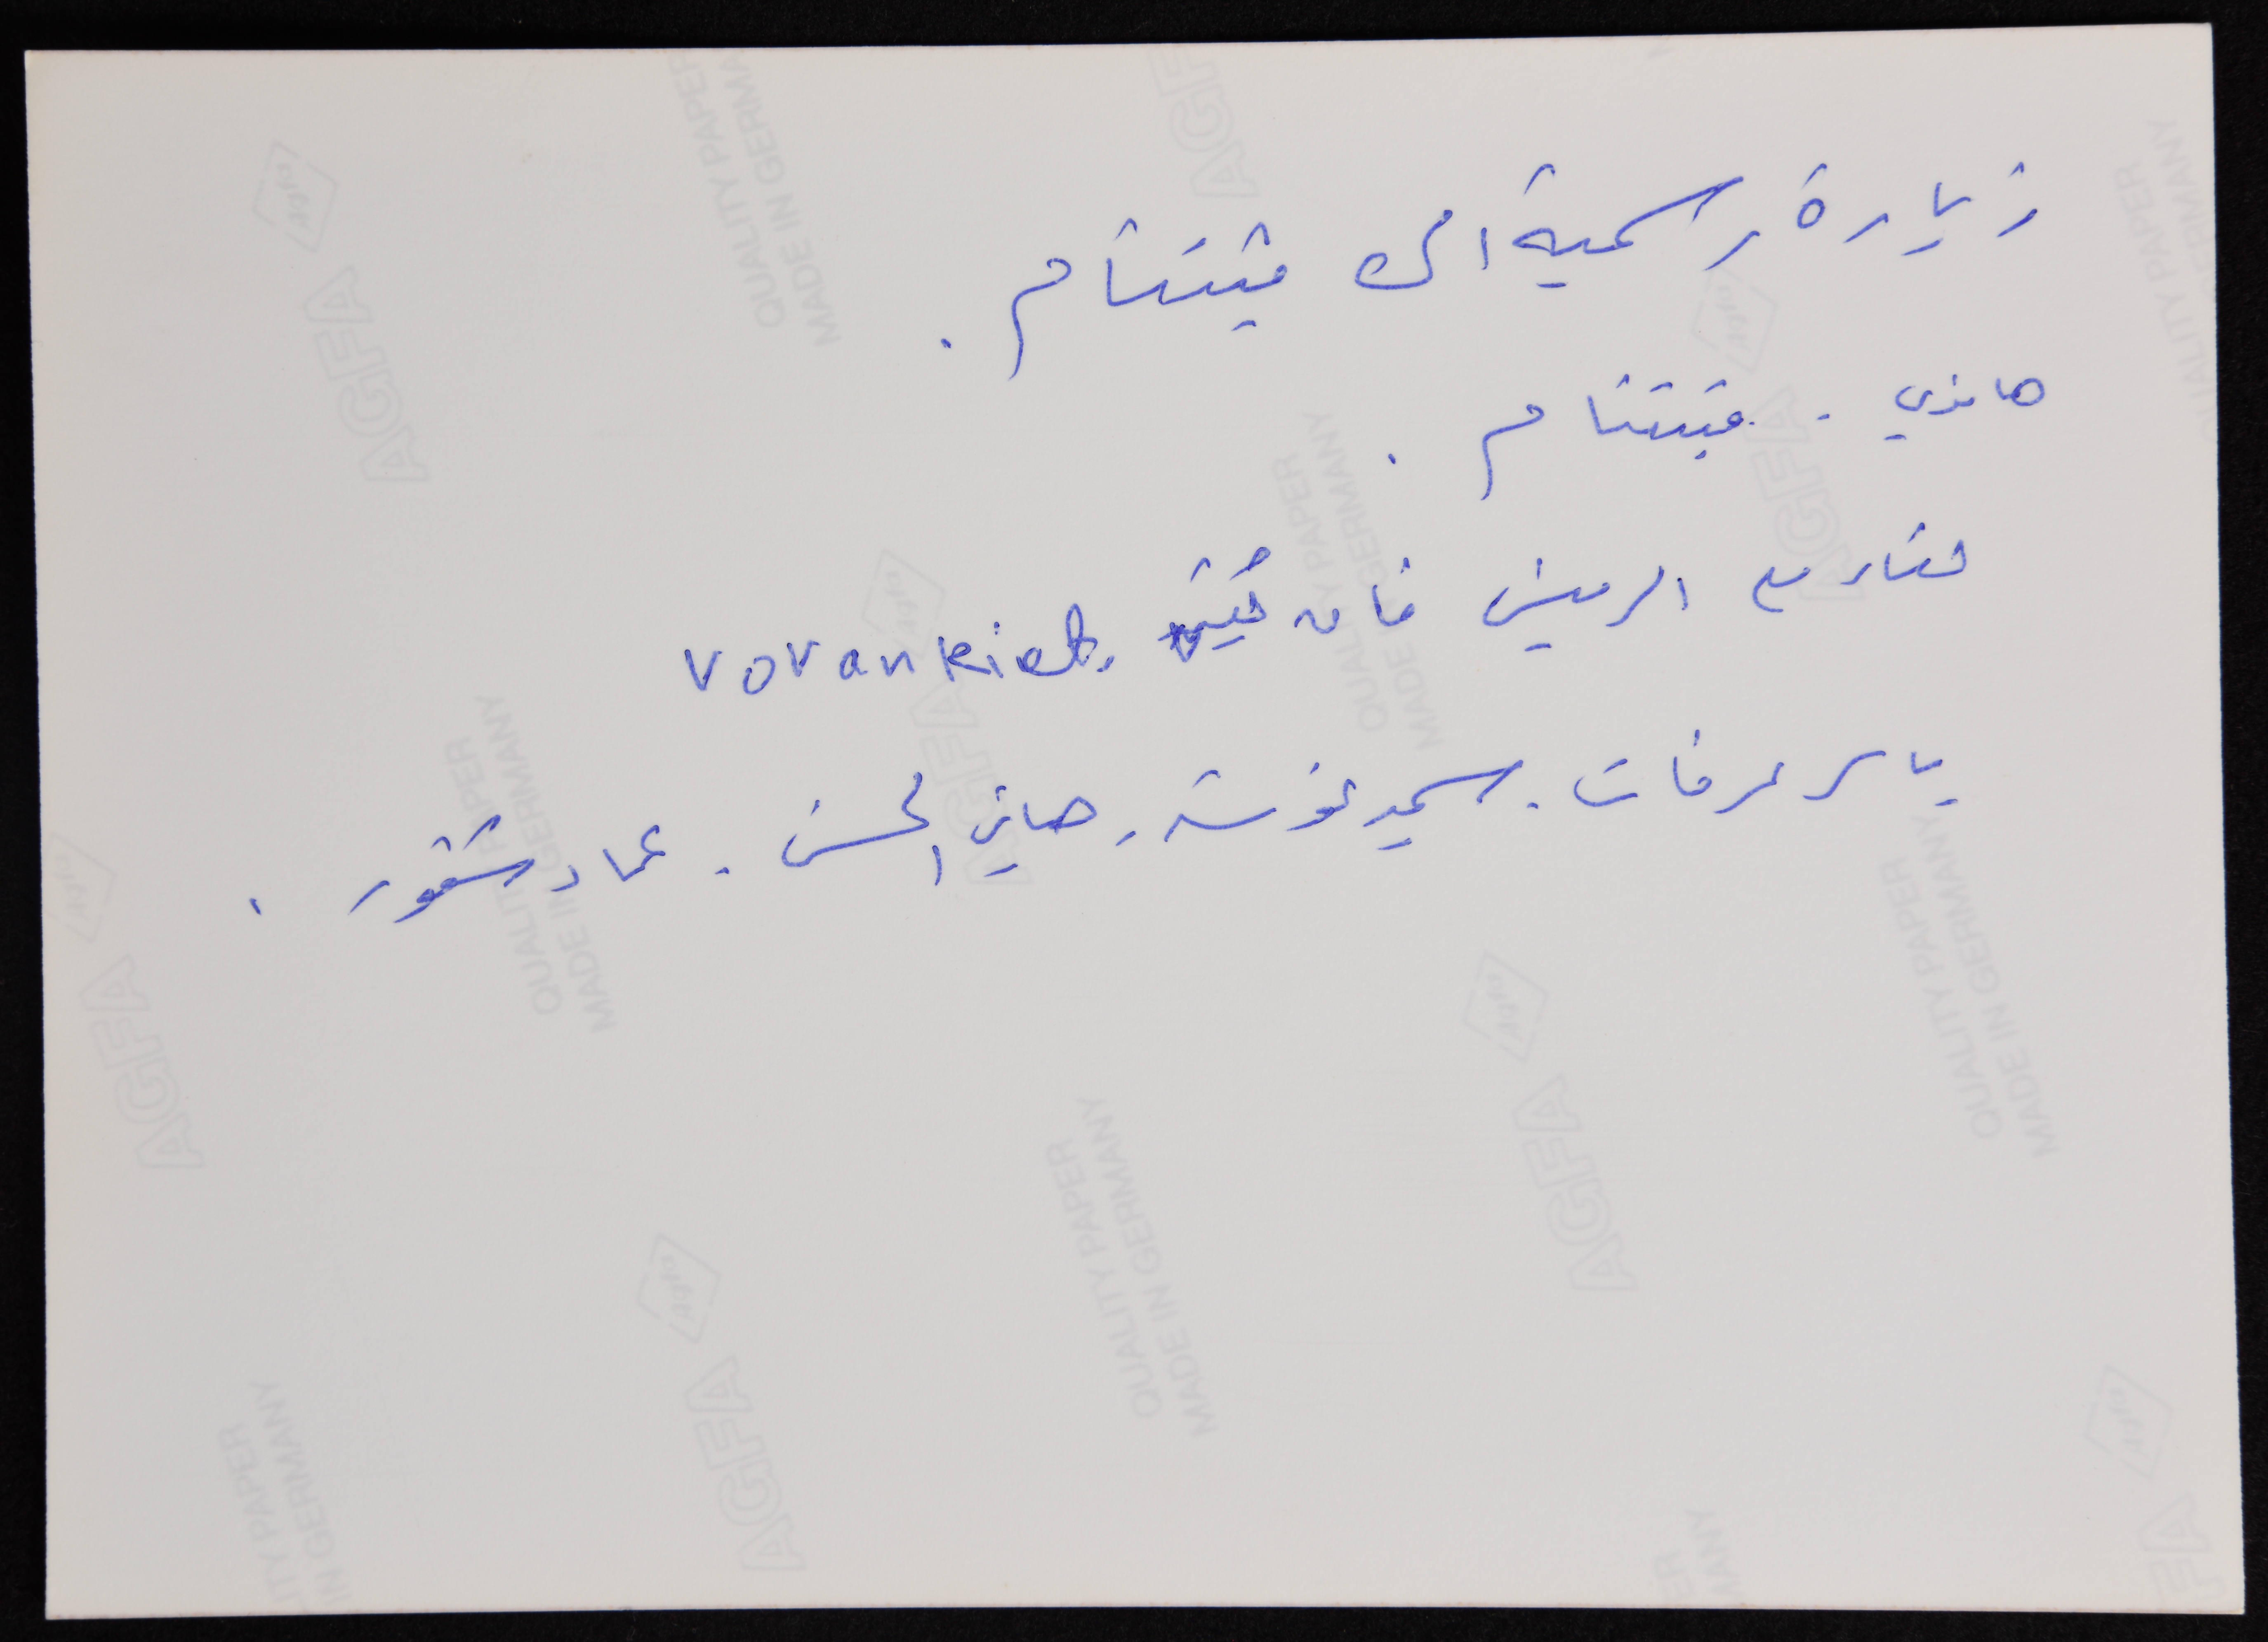 زيارة رسمية الى فيتنام .
هانوي - فيتنام .
لقاء مع الرئيس فان كيت Vovankiet
ياسر عرفات . سميد هاني الحسن . عماد شقور .
AGFA
QUALITY PAPER
MADE IN GERMANY